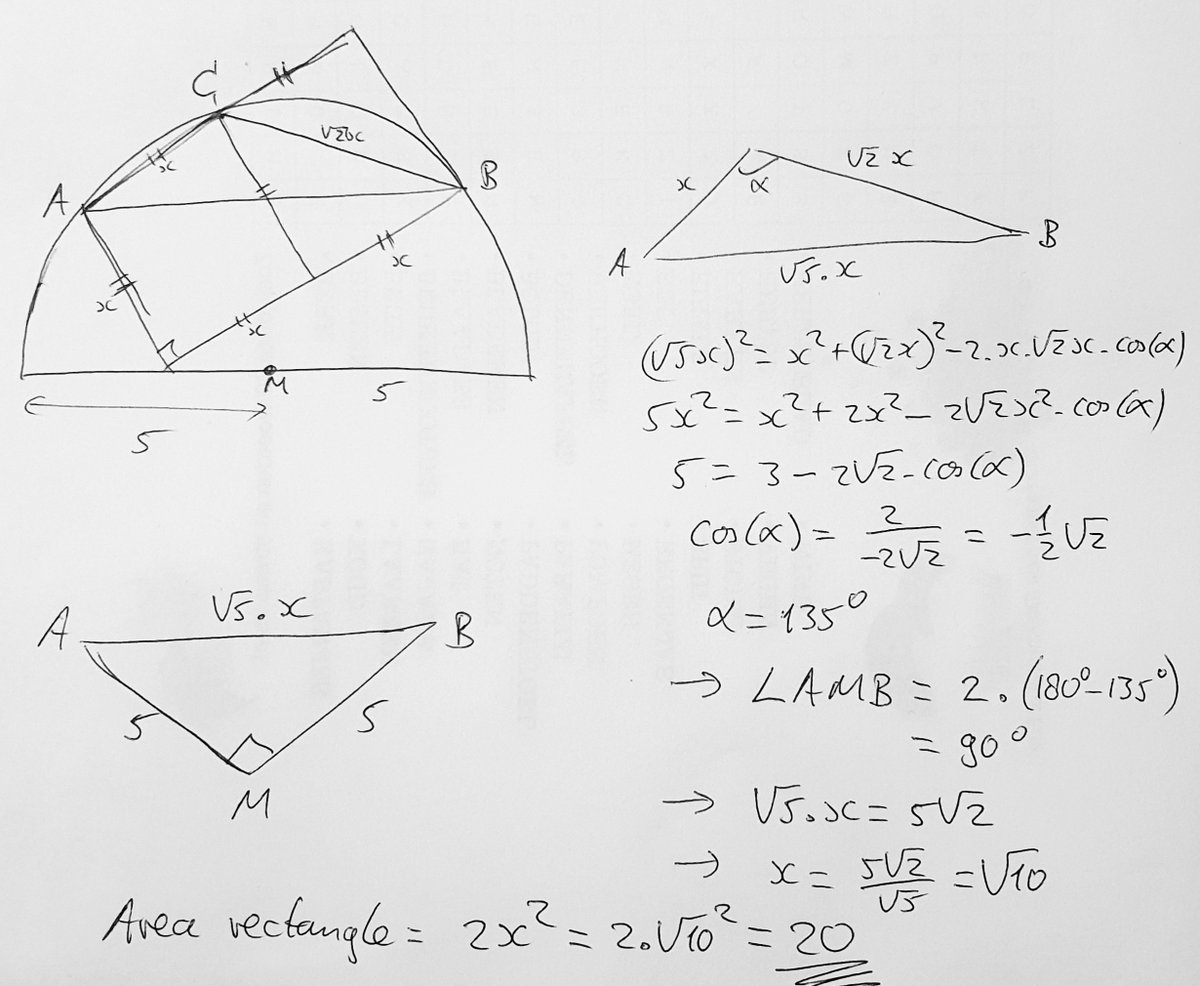 C
x
√2x
A
B
x
x
x
M
5
5
x
α
√2 x
A
B
√5.x
(√5x)² = x² + (√2x)² - 2.x.√2x.cos(α)
5x² = x² + 2x² - 2√2x².cos(α)
5 = 3 - 2√2.cos(α)
cos(α) = 2/-2√2 = -1/2√2
α = 135°
→ ∠AMB = 2.(180°-135°)
= 90°
A
√5.x
B
5
5
M
→ √5.x = 5√2
→ x = 5√2/√5 = √10
Area rectangle = 2x² = 2.√10² = 20